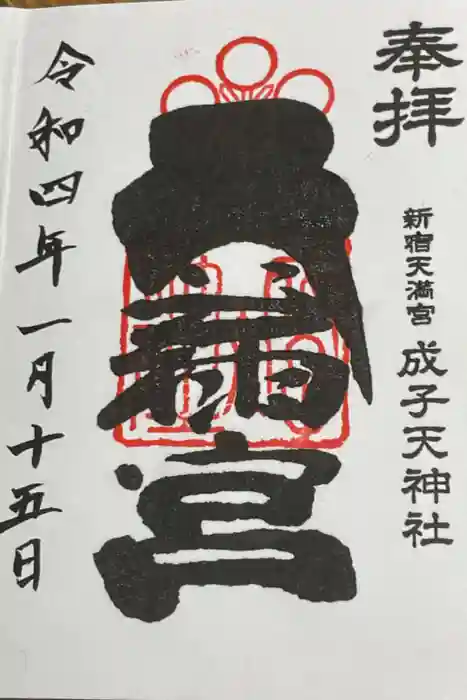 奉拝
新宿天満宮 成子天神社
天満宮
令和四年一月十五日